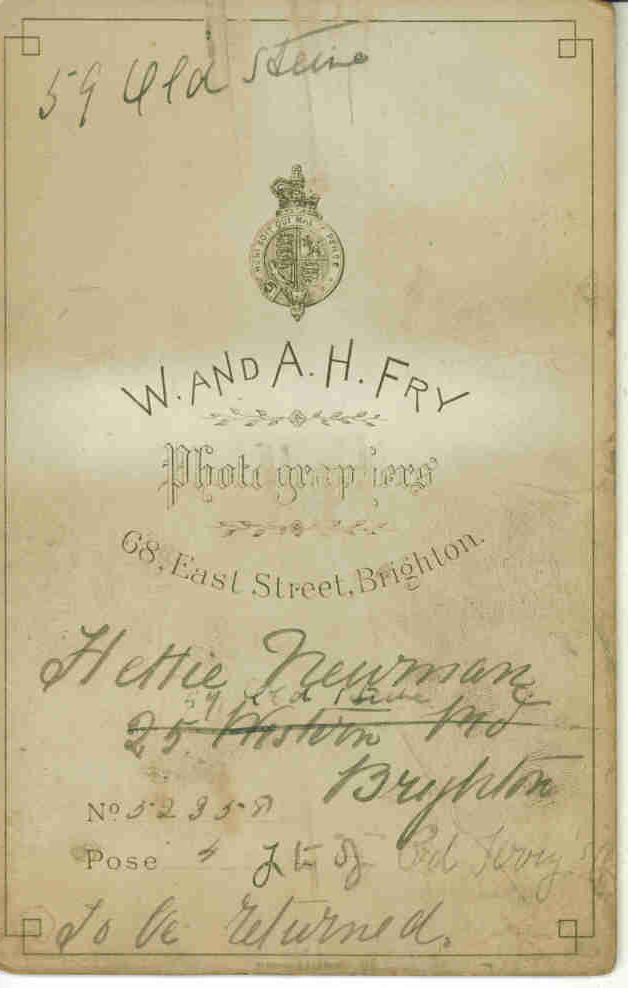 59 Old Steine
HONI SOIT QUI MAL Y PENSE
W. AND A. H. FRY
Photographers
68, East Street, Brighton.
Hettie Newman
59 Old Steine
25 Western Rd
Brighton
No 52358
Pose
To be returned.